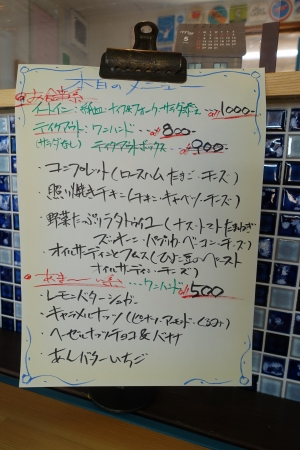 本日のメニュー
お食事系
イートイン:紙皿・ナイフ&フォーク・サラダ付 1000-
テイクアウト:ワンハンド 800-
(サラダなし) テイクアウトボックス 900-
・コンプレット(ロースハム たまご チーズ)
・照り焼きチキン(チキン キャベツ チーズ)
・野菜たっぷりラタトゥイユ(ナス トマト たまねぎ
ズッキーニ・パプリカ ベーコン チーズ)
・オイルサーディンとフムス(ひよこ豆のペースト
オイルサーディン チーズ)
あま〜い系 ワンハンド 500
・レモンバターシュガー
・キャラメルナッツ(ピーナツ・アーモンド・くるみ)
・ヘーゼルナッツチョコ&バナナ
・あんバターいちご